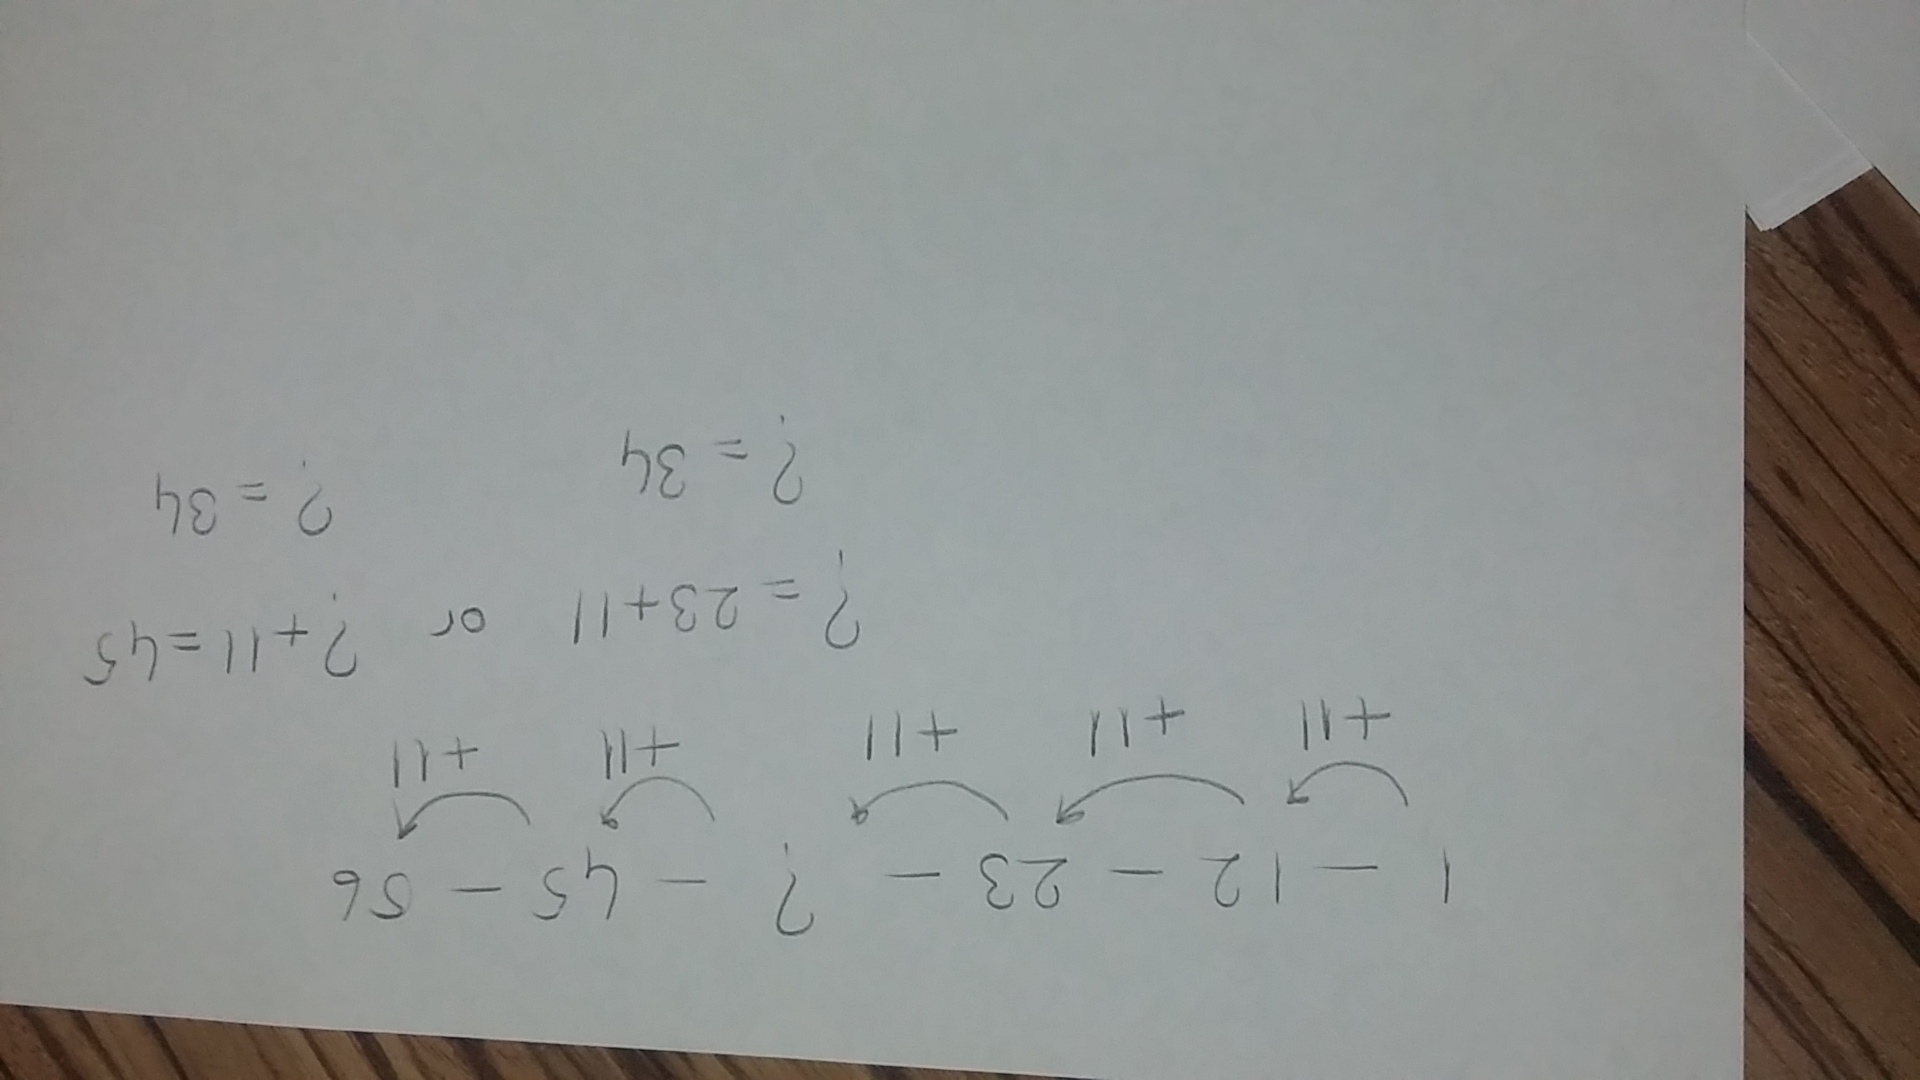 1 - 12 - 23 - ? - 45 - 56
+11 +11 +11 +11 +11
? = 23+11 or ?+11=45
? = 34 ? = 34